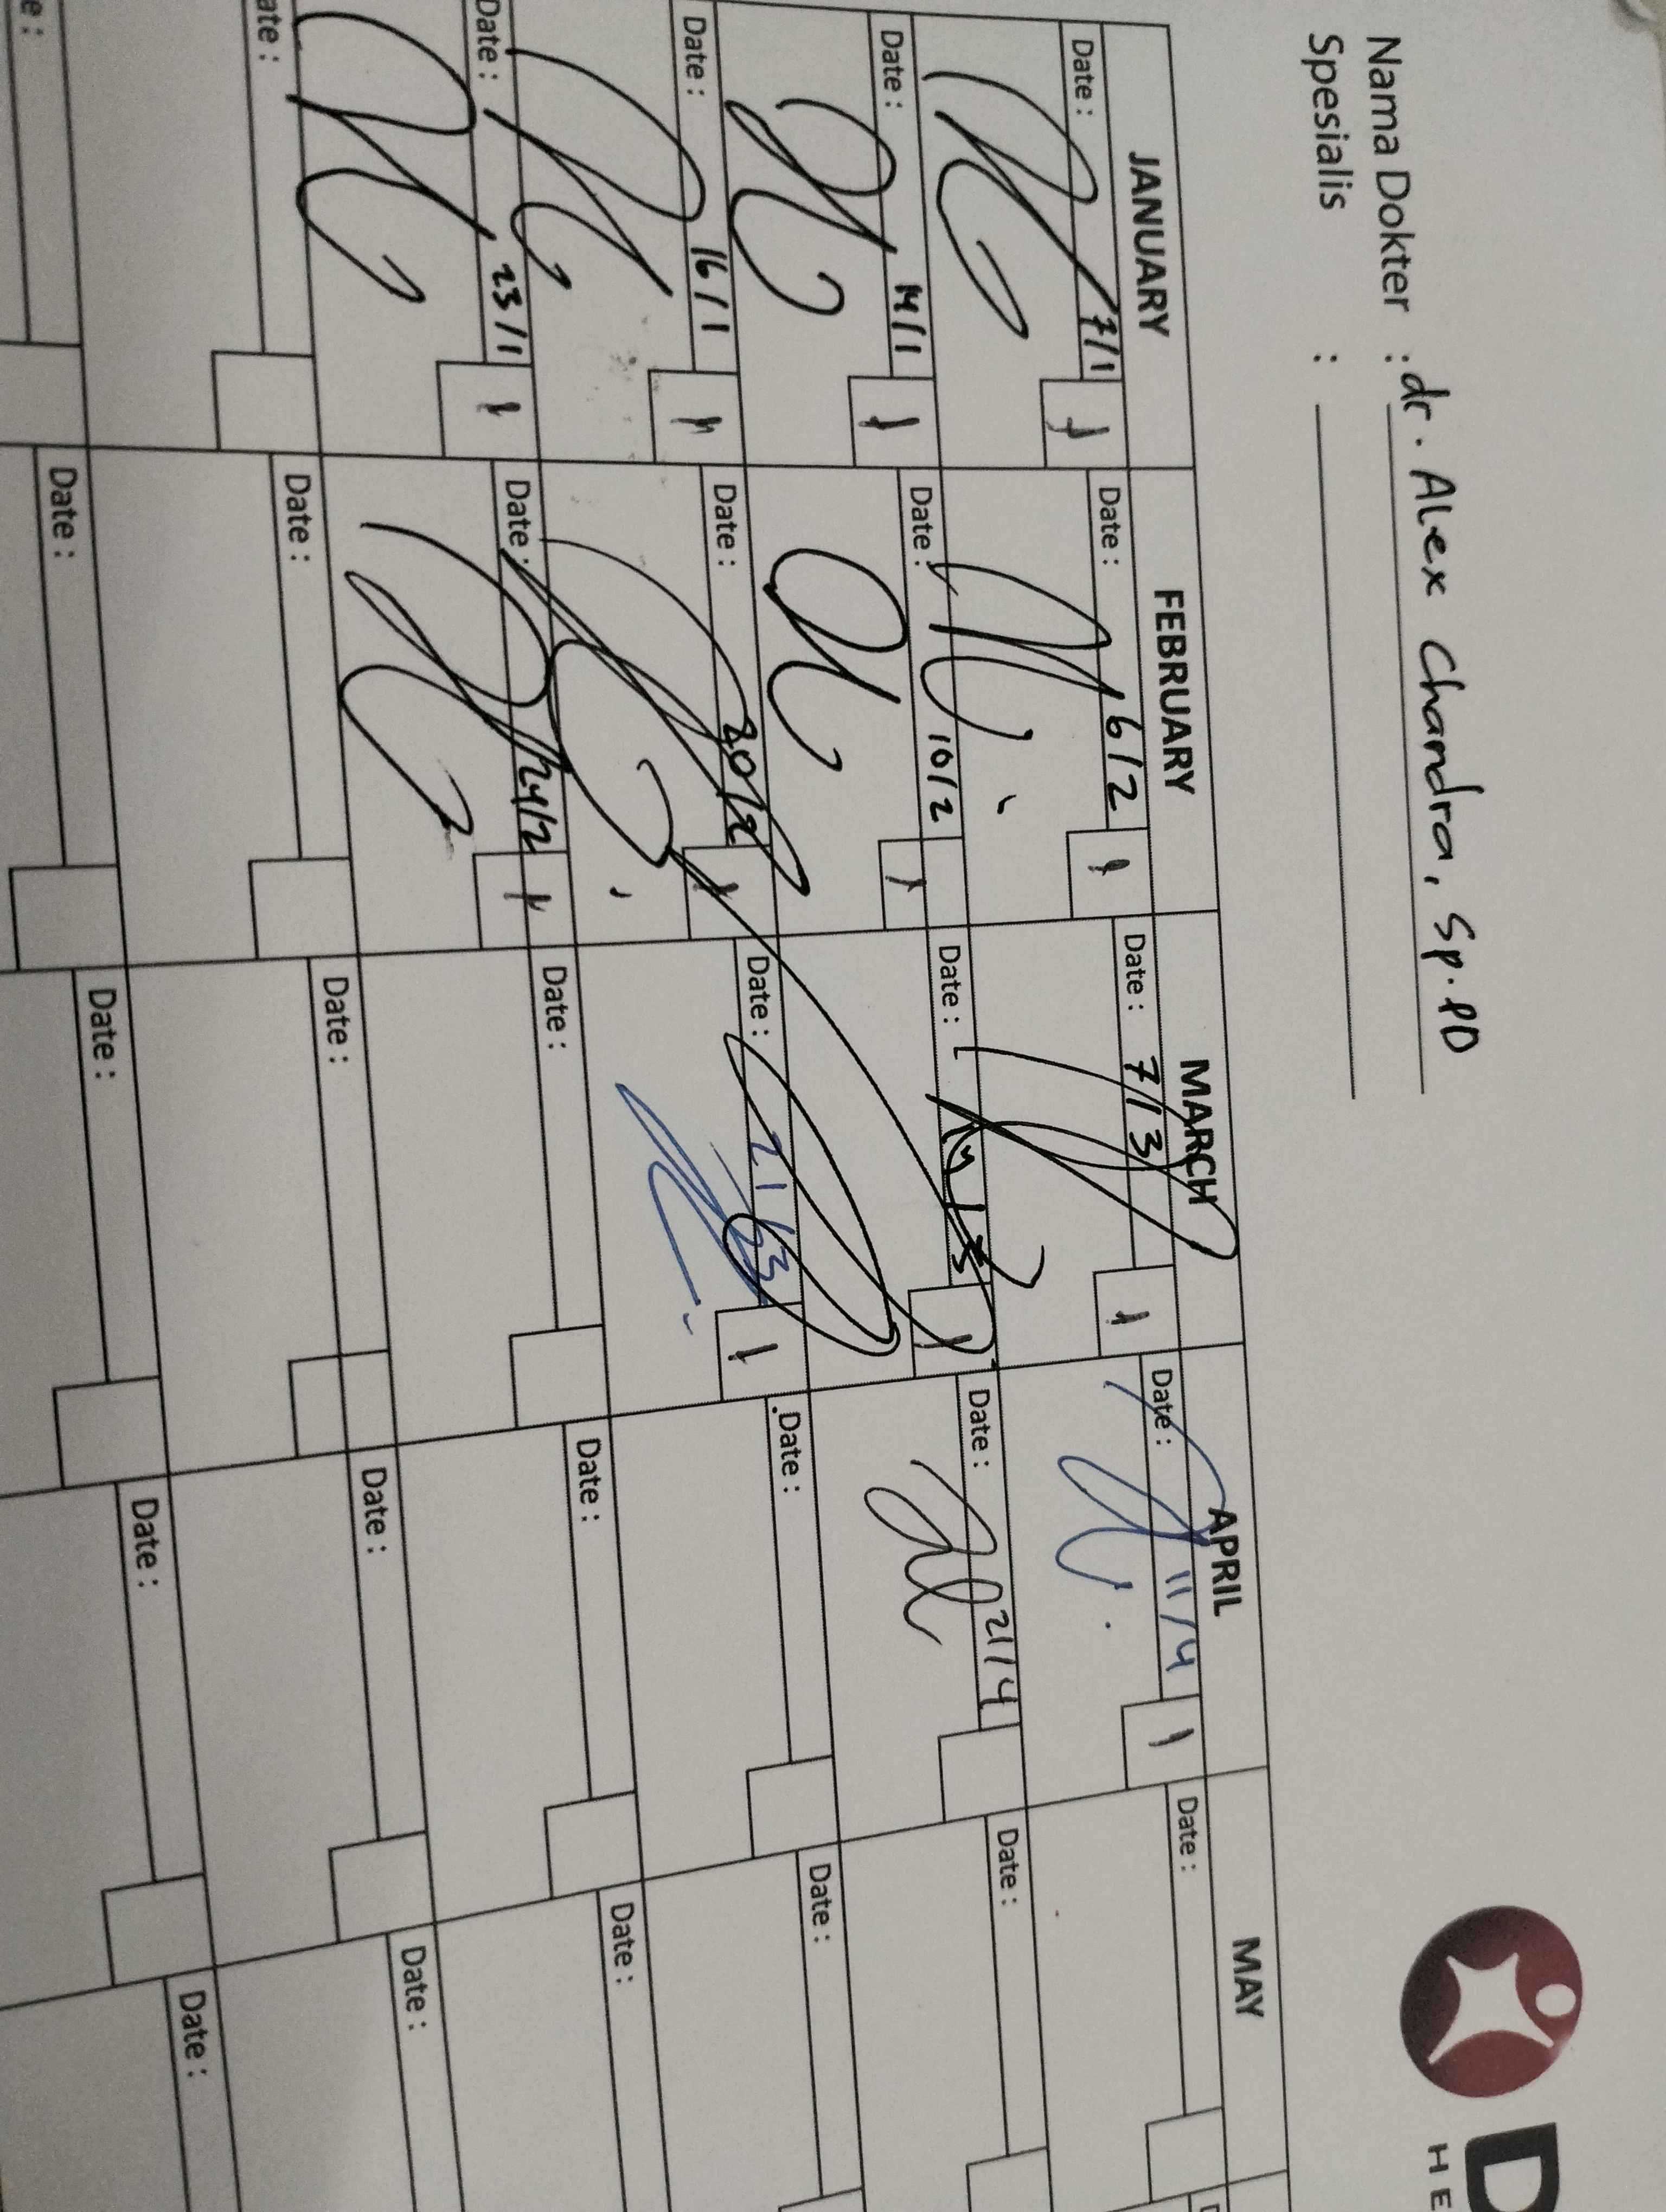 Nama Dokter : dr. Alex Chandra, Sp.PD
Spesialis :
D
HE
JANUARY FEBRUARY MARCH APRIL MAY
Date : 7/1 1 Date : 6/2 1 Date : 7/3 1 Date : 11/4 1 Date :
Date : 14/1 1 Date : 10/2 1 Date : Date : 21/4 Date :
Date : 16/1 1 Date : 20/2 1 Date : 21/3 1 Date : Date :
Date : 23/1 1 Date : 24/2 1 Date : Date : Date :
ate : Date : Date : Date : Date :
e : Date : Date : Date : Date :